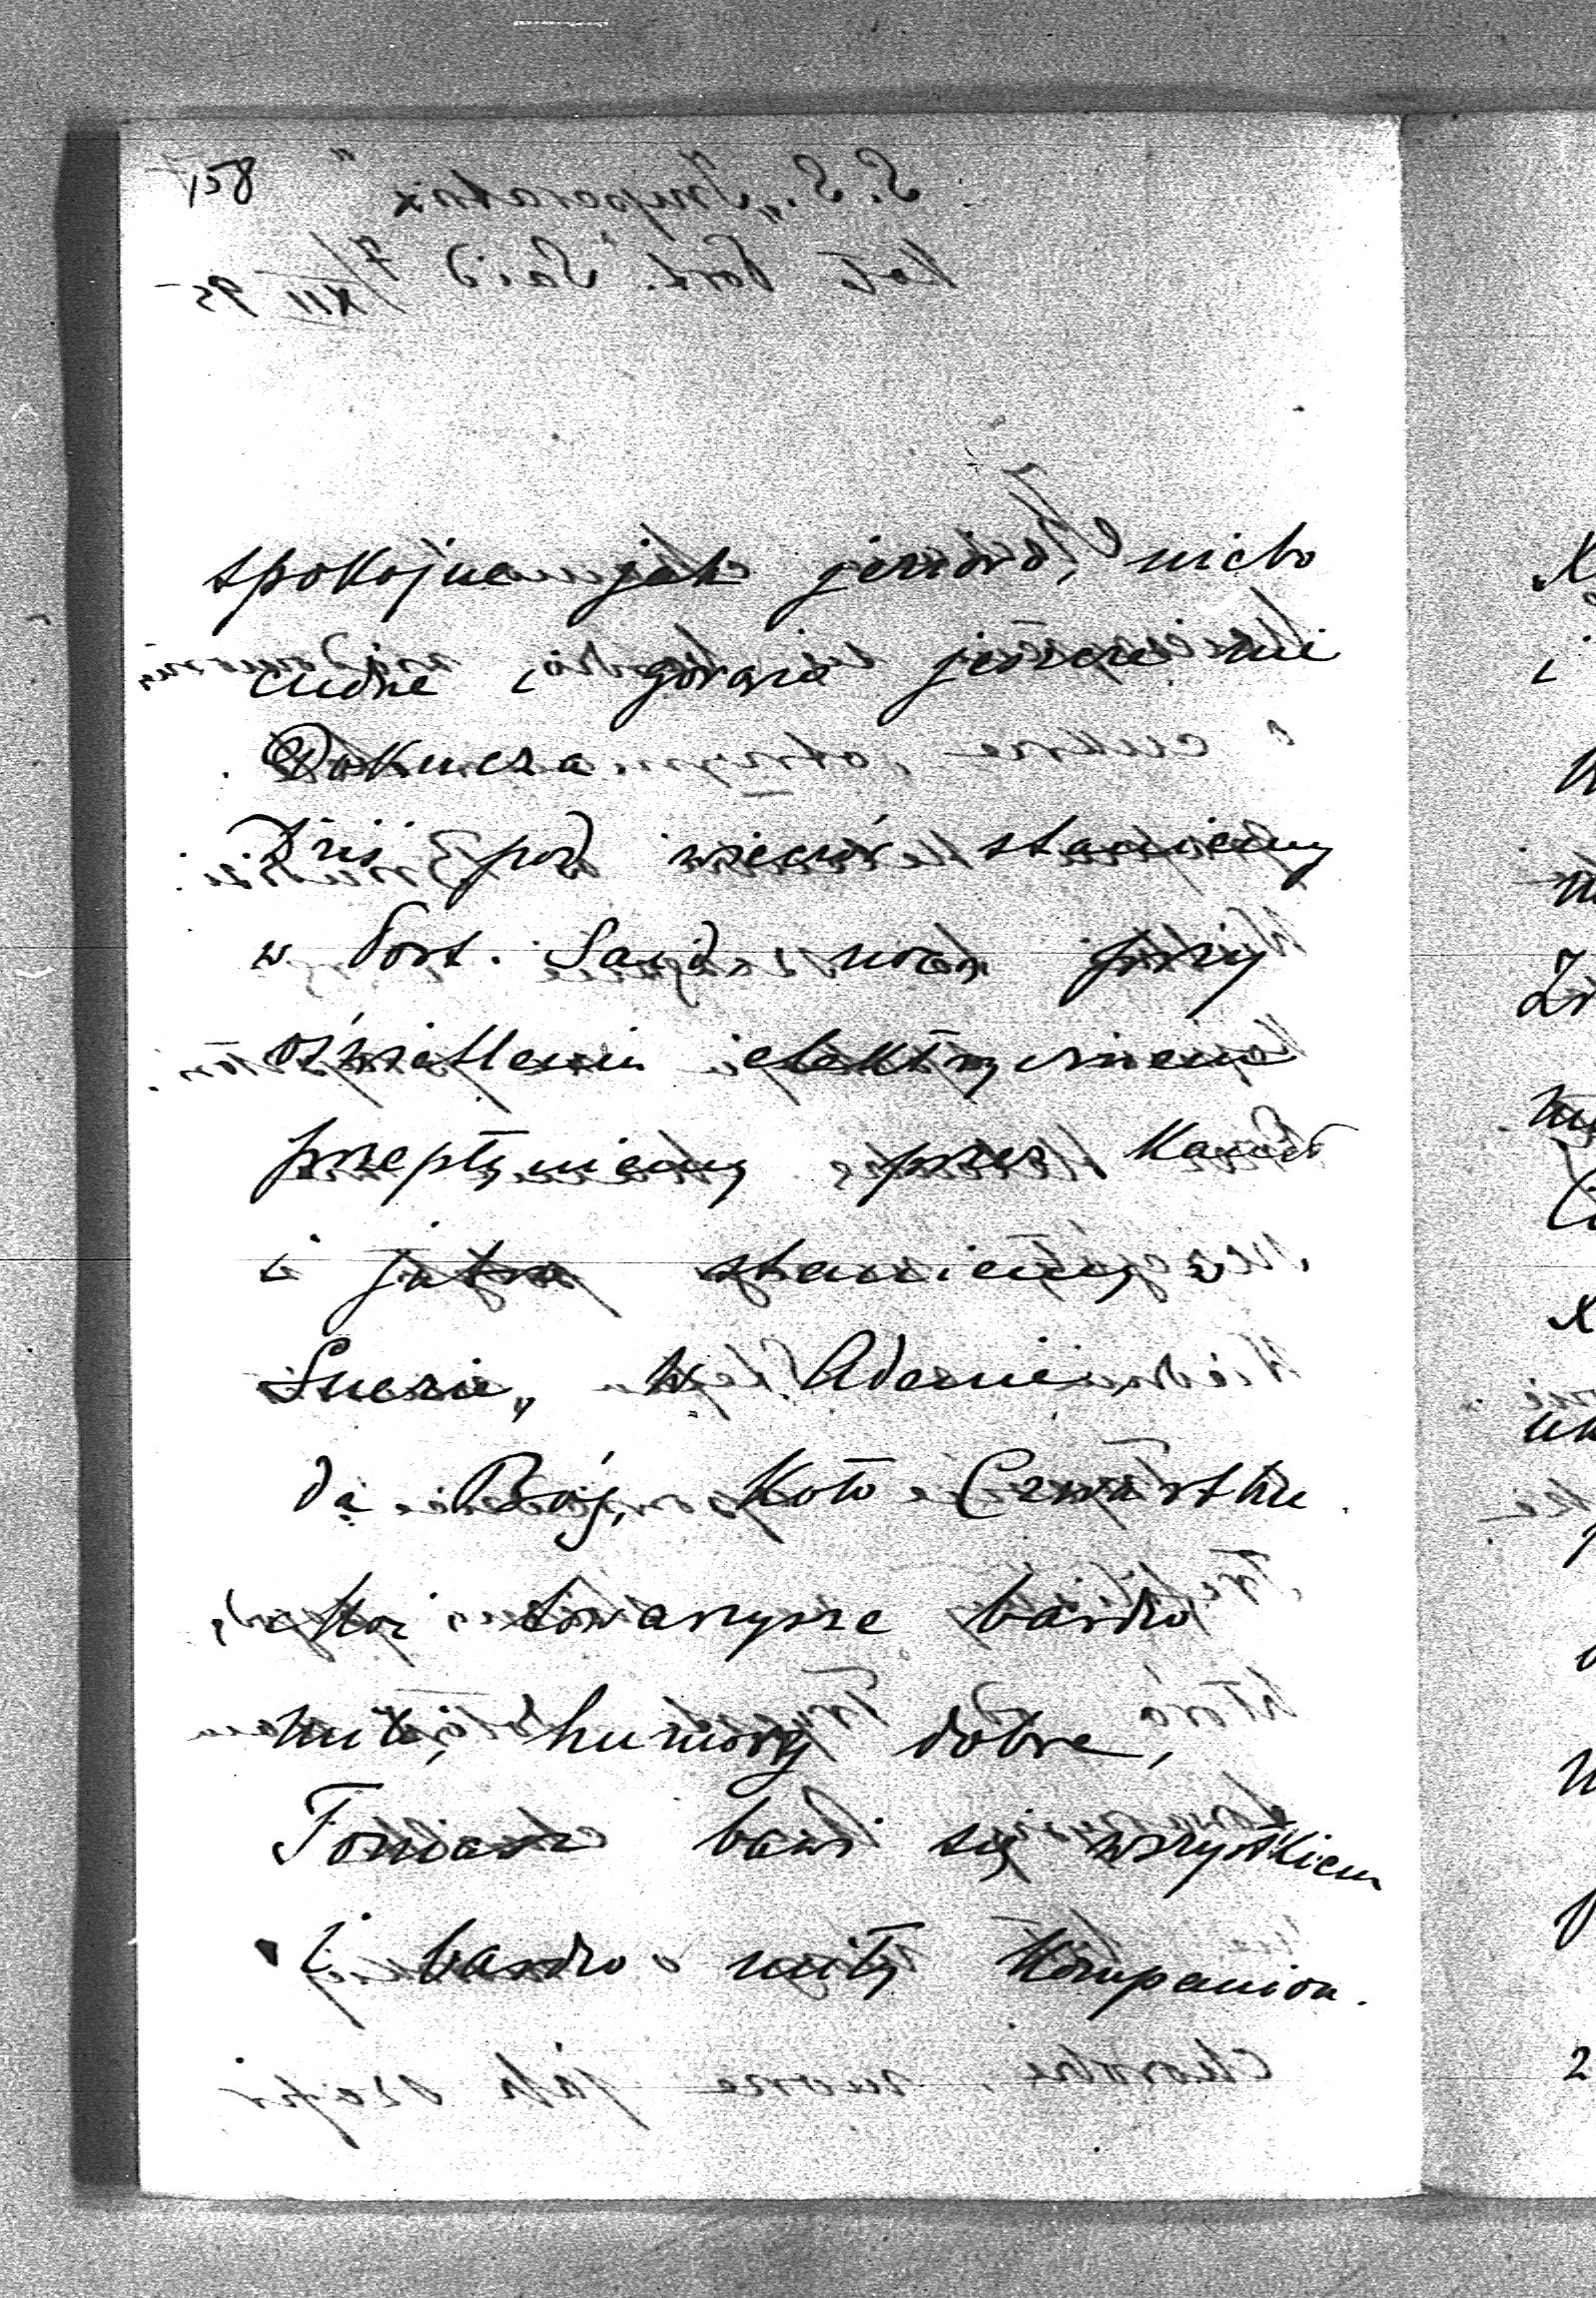 158
spokojne jak jezioro, niebo
cudne i gorąco jeszcze nie
dokucza
Dziś pod wieczór staniemy
w Port. Said, nocą przy
oświetleniu elektrycznem
przepłyniemy przez Kanał
i jutro staniemy w
Suezie, w Adenie
da Bóg, koło Czwartku.
towarzysze bardzo
mili, humory dobre,
Tomasz bawi się wszystkiem
i bardzo miły kompanion.